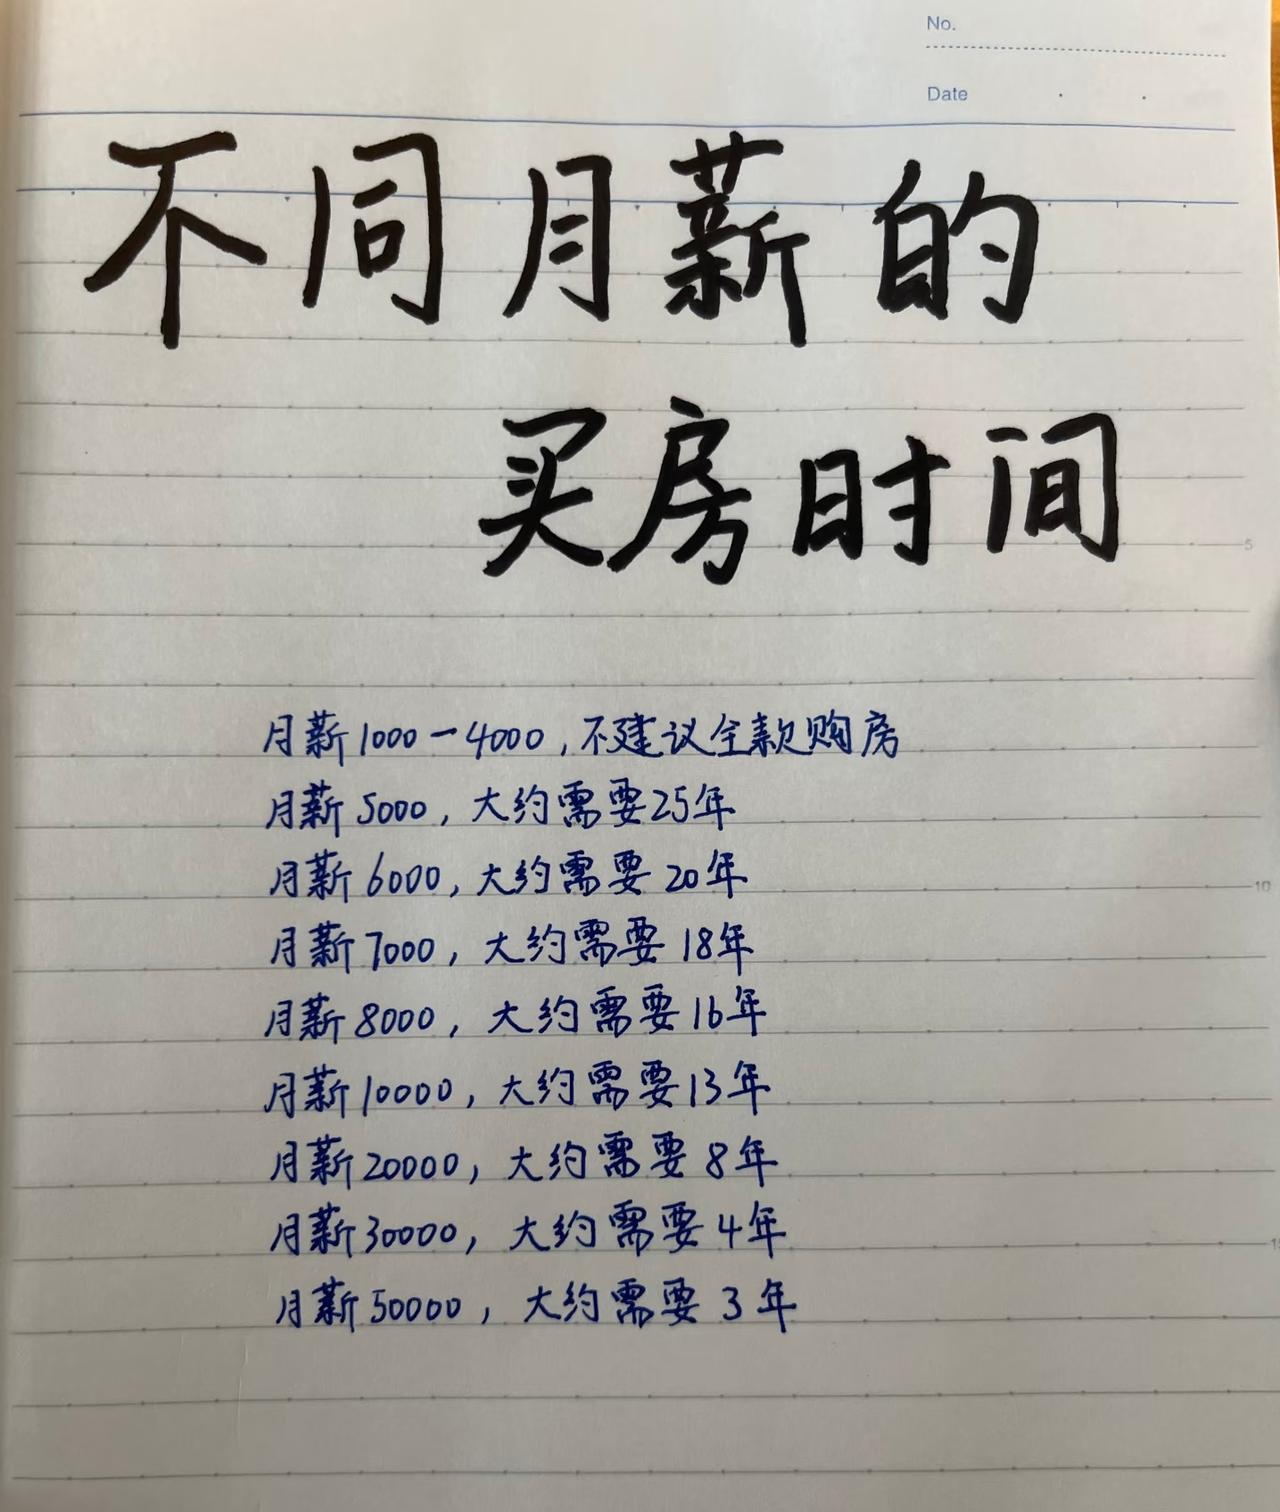 No.
Date
不同月薪的
买房时间
5
月薪1000-4000,不建议全款购房
月薪5000,大约需要25年
月薪6000,大约需要20年
10
月薪7000,大约需要18年
月薪8000,大约需要16年
月薪10000,大约需要13年
月薪20000,大约需要8年
月薪30000,大约需要4年
月薪50000,大约需要3年